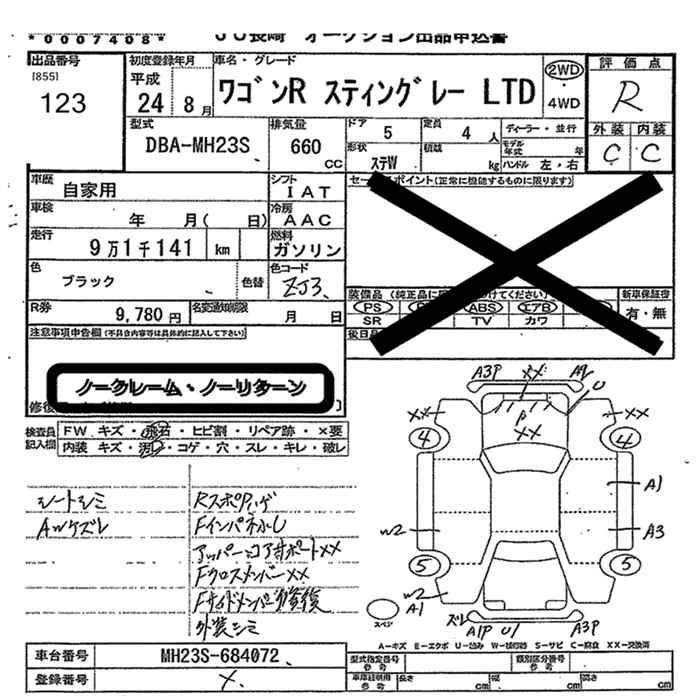 *0007408* JU長崎 オークション出品申込書
出品番号 初度登録年月 車名・グレード 評価点
[855] 平成 2WD
123 24 8月 ワゴンR スティングレー LTD ・ R
4WD
型式 排気量 ドア 5 定員 4人 ディーラー・並行 外装 内装
DBA-MH23S 660 CC 形状 ステW 積載 kg モデル年式 年 C C
ハンドル 左・右
車歴 自家用 シフト IAT セールスポイント(正常に機能するものに限ります)
車検 年 月( 日) 冷房 AAC
走行 9万1千141 km 燃料 ガソリン
色 ブラック 色替 色コード ZJ3
装備品 新車保証書
R券 9,780円 名変通知期限 月 日 PS ABS エアB 有・無
SR TV カワ
注意事項申告欄(不具合内容等は具体的に記入して下さい)
ノークレーム・ノーリターン
検査員 FW キズ・飛石・ヒビ割・リペア跡・×要
記入欄 内装 キズ・汚れ・コゲ・穴・スレ・キレ・破レ
A3P XX A2 U
P XX
XX XX
4 4
A1
W2 A3
5 5
W2
A1
スペア
ズレ
A1P U1 A3P
シートシミ RスポPハゲ
AWケズレ Fインパネふし
アッパーコアサポートXX
FクロスメンバーXX
Fサイドメンバー修復
外装シミ
A-キズ E-エクボ U-凹み W-補修跡 S-サビ C-腐食 XX-交換済
車台番号 MH23S-684072 型式指定番号 参考 類別区分番号 参考
登録番号 × 車庫証明用 参考 長さ cm 幅 cm 高さ cm